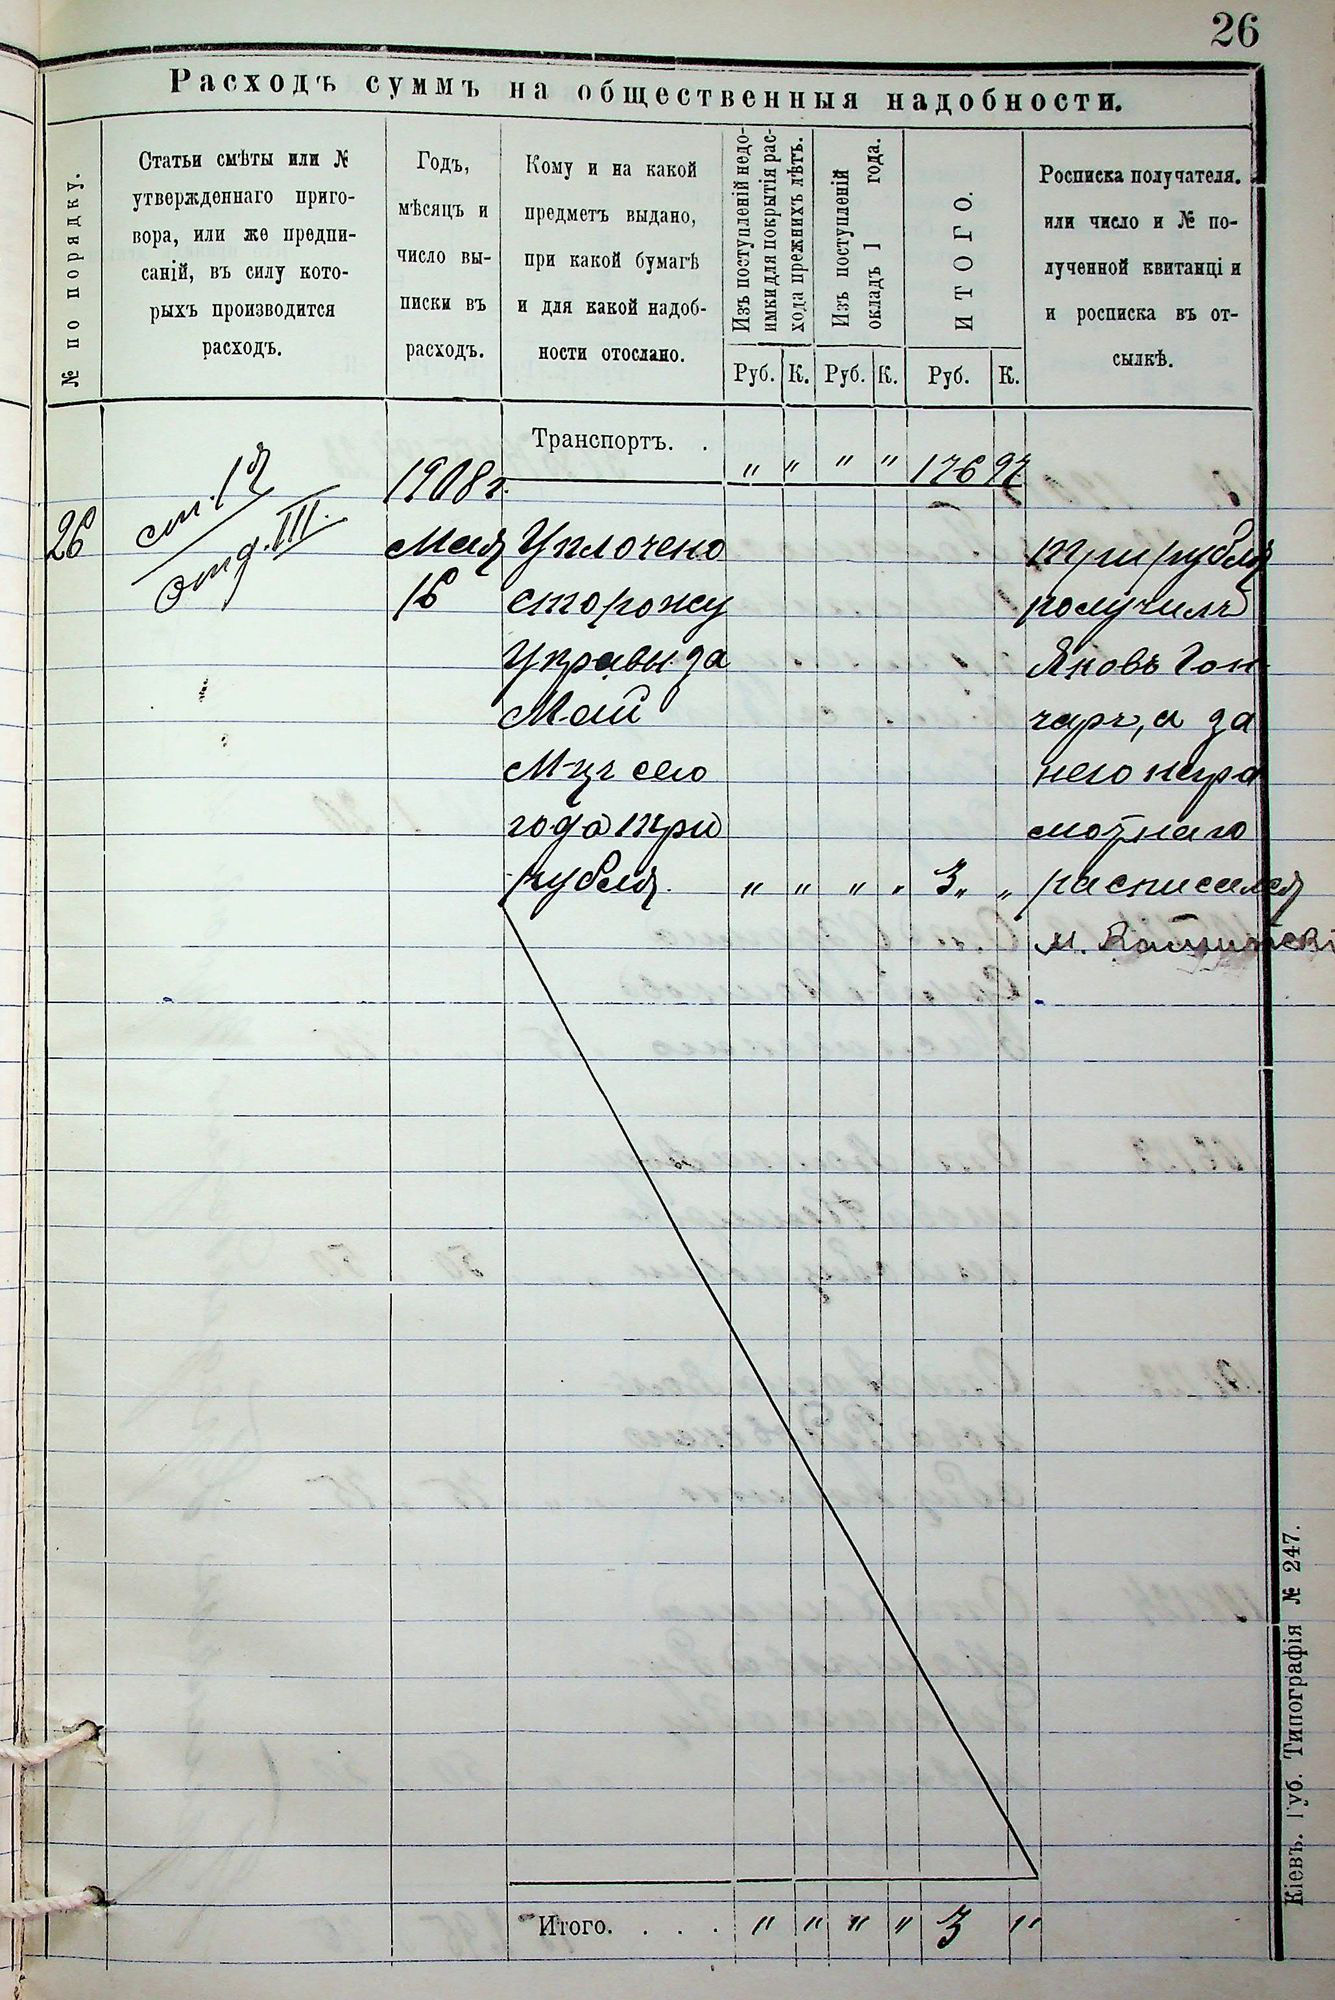 26
Расходъ суммъ на общественныя надобности.
№ по порядку.
Статьи смѣты или №
утвержденнаго приго-
вора, или же предпи-
саній, въ силу кото-
рыхъ производится
расходъ.
Годъ,
мѣсяцъ и
число вы-
писки въ
расходъ.
Кому и на какой
предметъ выдано,
при какой бумагѣ
и для какой надоб-
ности отослано.
Изъ поступленій недо-
имки для покрытія рас-
хода прежнихъ лѣтъ.
Изъ поступленій
окладъ 1 года.
ИТОГО.
Росписка получателя.
или число и № по-
лученной квитанці и
и росписка въ от-
сылкѣ.
Руб. К. Руб. К. Руб. К.
Транспортъ. . „ „ „ „ 176 97
26
ст. 12
отд. III.
1908 г.
Мая
16
Уплочено
сторожу
Управы за
Май
М-цъ сего
года три
рубля. „ „ „ „ 3 „ „
три рубля
получилъ
Яковъ Гон-
чаръ, а за
него негра
мотнаго
расписался
Итого. . . . „ „ „ „ 3 „
Кіевъ. Губ. Типографія № 247.